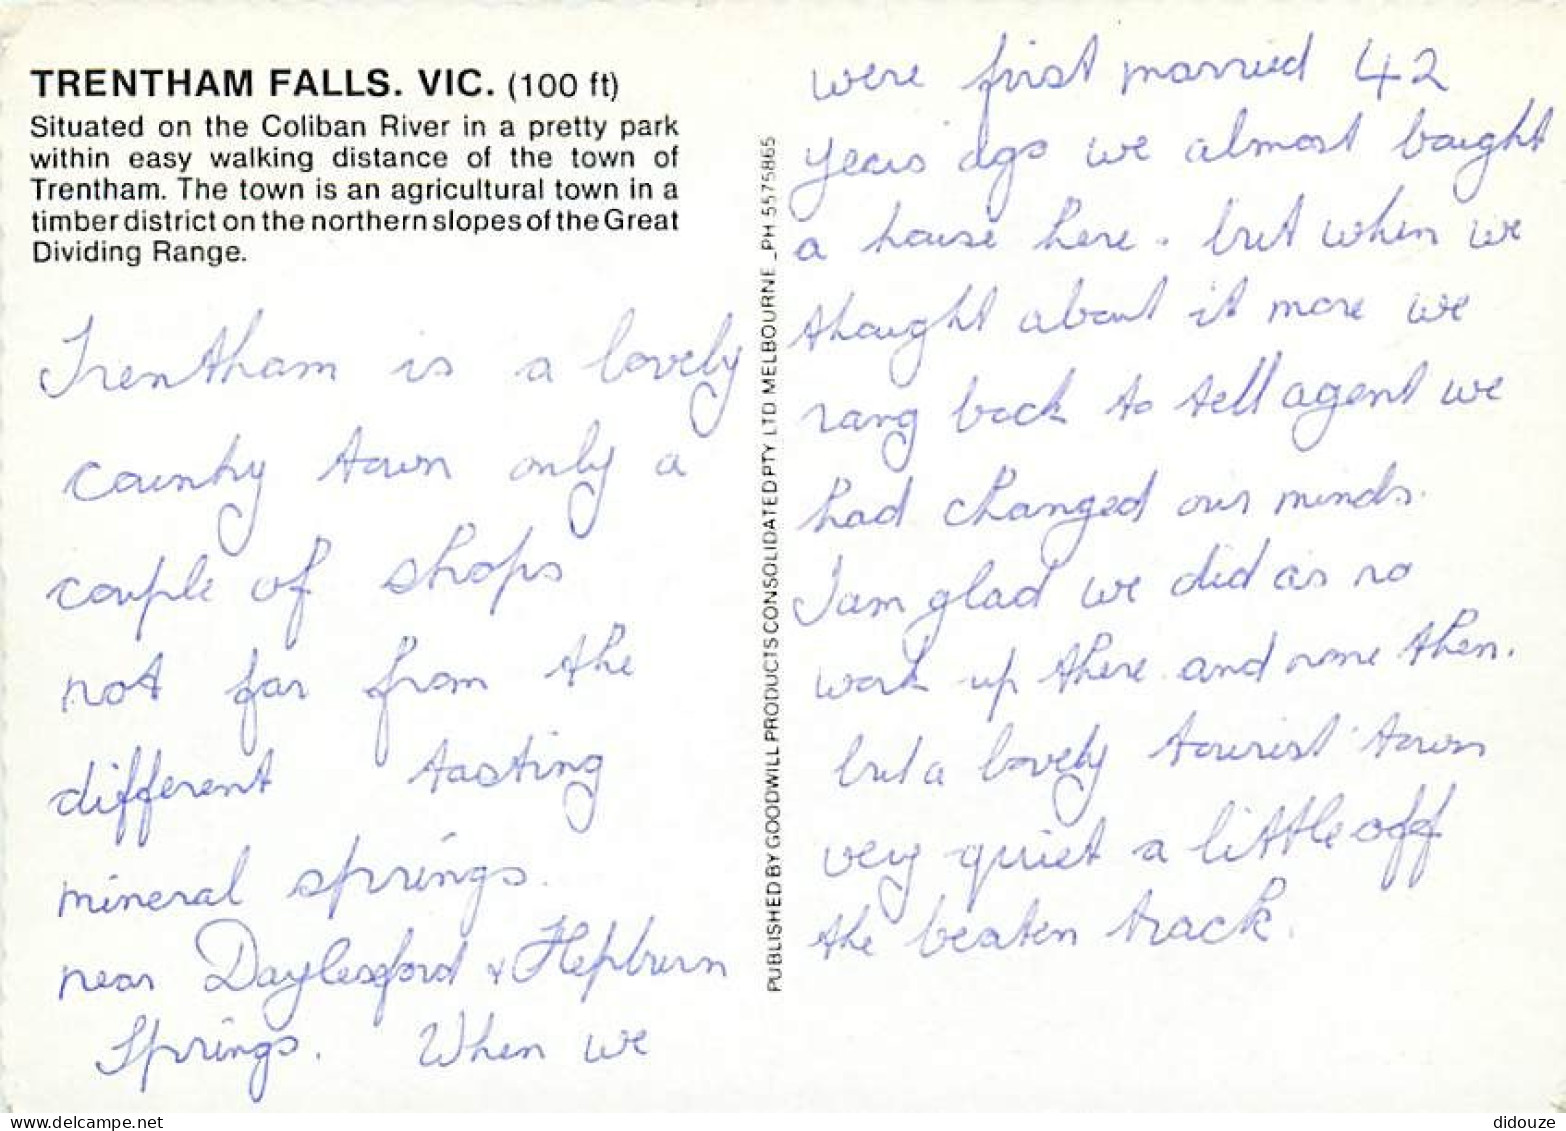 TRENTHAM FALLS. VIC. (100 ft)
Situated on the Coliban River in a pretty park
within easy walking distance of the town of
Trentham. The town is an agricultural town in a
timber district on the northern slopes of the Great
Dividing Range.
Trentham is a lovely
country town only a
couple of shops
not far from the
different tasting
mineral springs.
near Daylesford & Hepburn
Springs. When we
PUBLISHED BY GOODWILL PRODUCTS CONSOLIDATED PTY LTD MELBOURNE _ PH 5575865
were first married 42
years ago we almost bought
a house here. but when we
thought about it more we
rang back to tell agent we
had changed our minds.
I am glad we did as no
work up there and none then.
but a lovely tourist town
very quiet a little off
the beaten track.
didouze